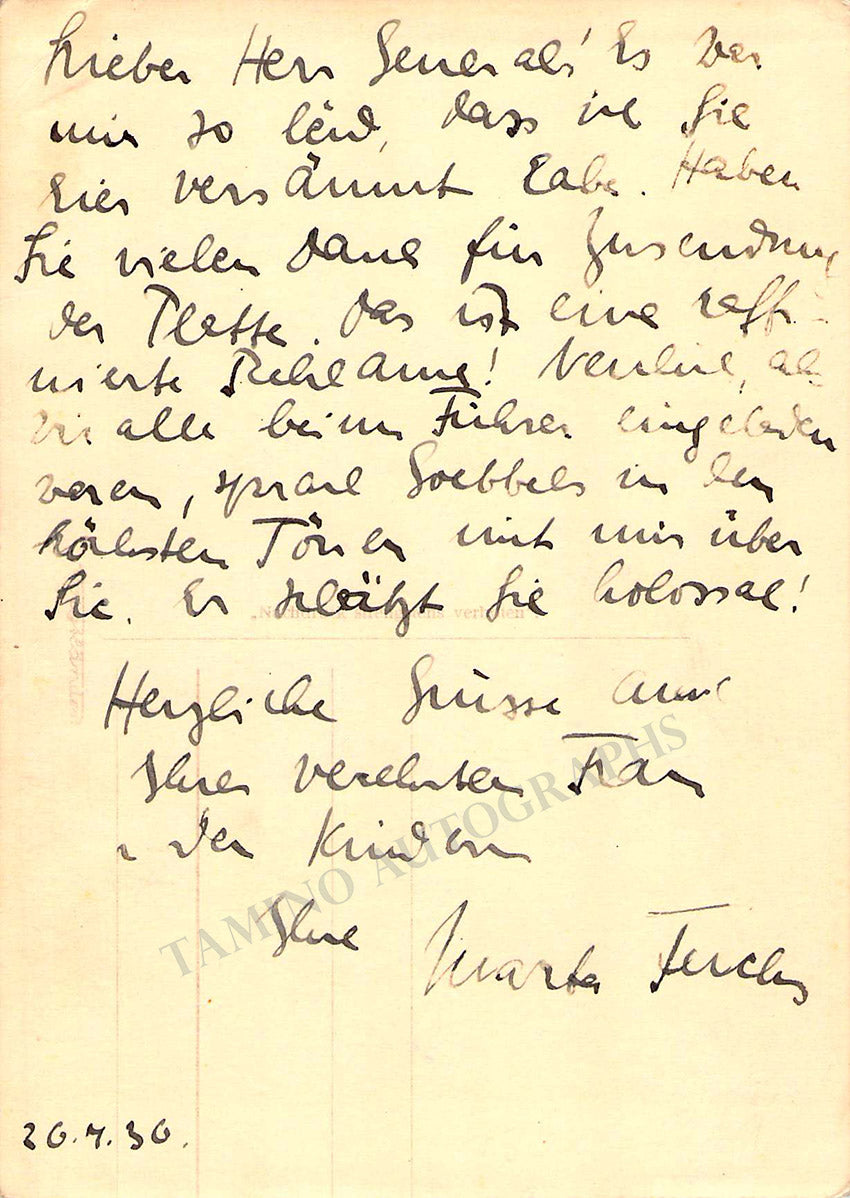 Lieber Herr General! Es war
mir so leid, dass ich Sie
hier versäumt habe. Haben
Sie vielen Dank für Zusendung
der Platte. Das ist eine raffi-
nierte Reklame! Neulich, als
wir alle beim Führer eingeladen
waren, sprach Goebbels in den
höchsten Tönen mit mir über
Sie. Er schätzt Sie kolossal!
„Nachdruck strengstens verboten“
Herzliche Grüsse auch
Ihrer verehrten Frau
u. den Kindern
Ihre Marta Fuchs
TAMINO AUTOGRAPHS